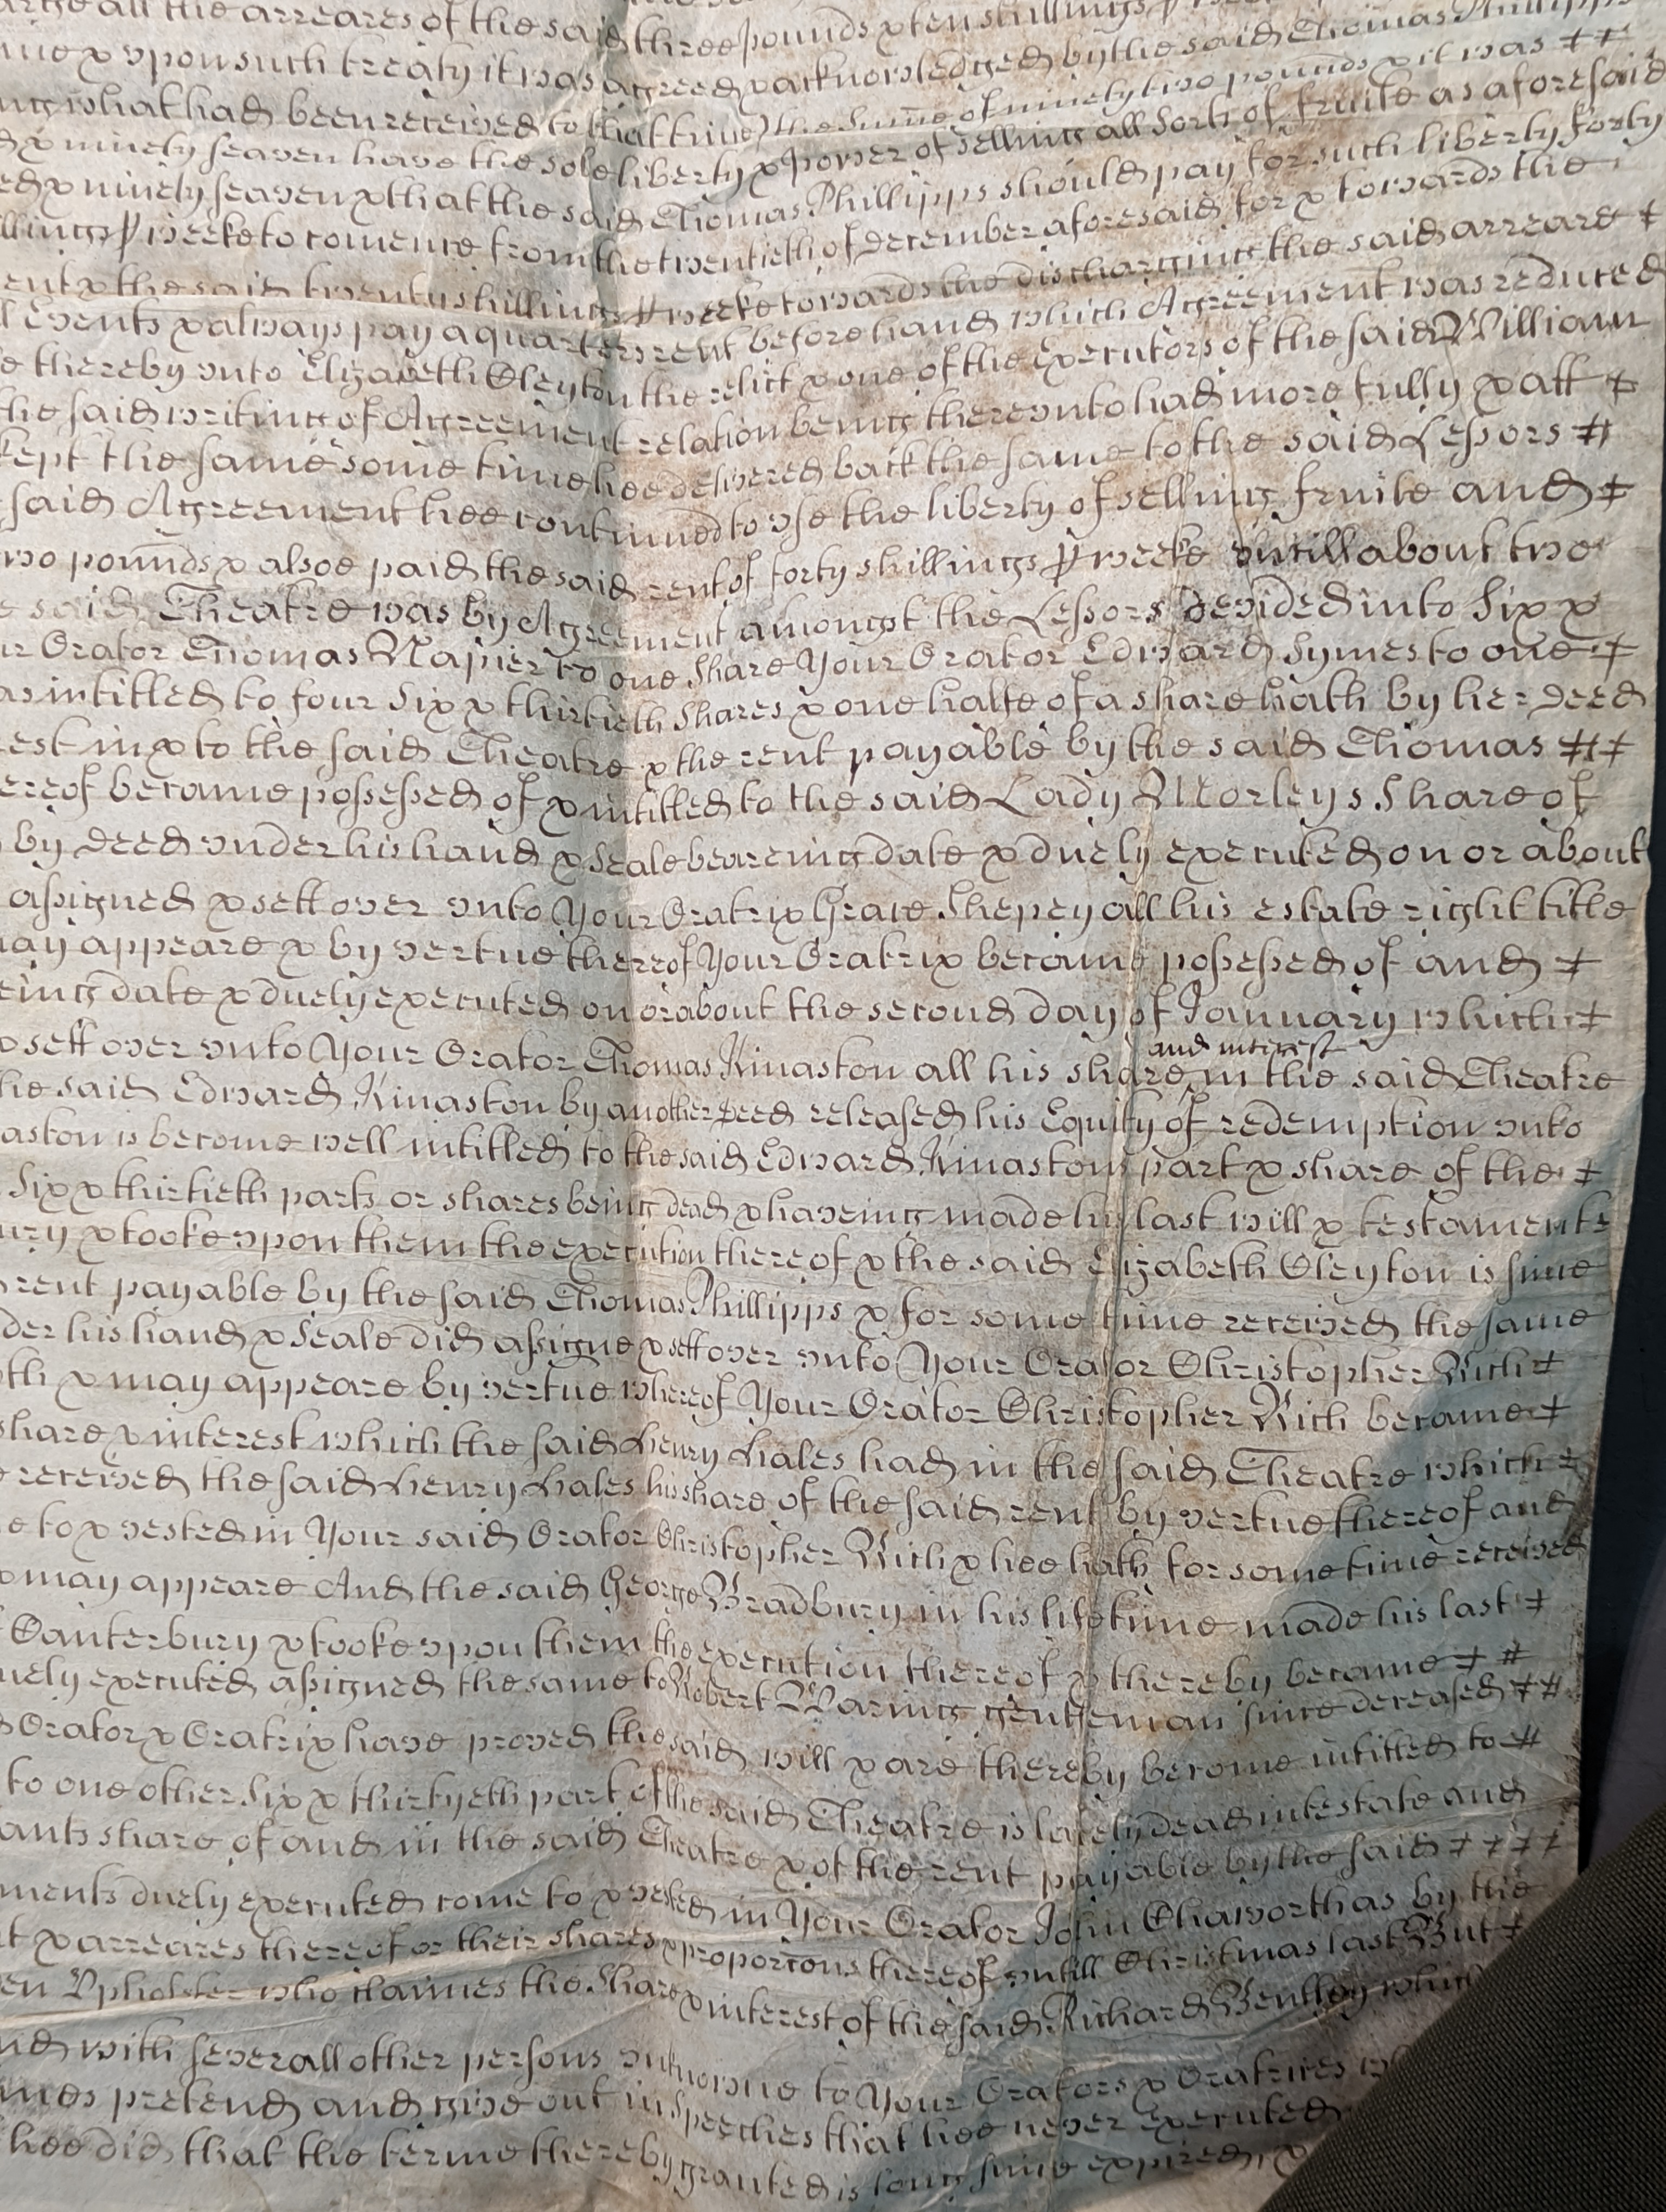 all the arreares of the said three pounds & ten shillings
& upon such treaty it was agreed & acknowledged by the said Thomas Phillipps
what had been received to that time) the summe of ninety two pounds & it was ++
& ninety seaven have the sole liberty & power of selling all sorts of fruite as aforesaid
& ninety seaven & that the said Thomas Phillipps should pay for such liberty forty
llings p weeke to comence from the twentieth of December aforesaid for & towards the
ent & the said twenty shillings p weeke towards the discharging the said arreare +
Events & always pay a quarters rent before hand which Agreement was reduced
thereby unto Elizabeth Cleyton the relict & one of the Executors of the said William
the said writing of Agreement relation being thereunto had more fully & att +
kept the same some time hee delivered back the same to the said Lessors #
said Agreement hee continued to use the liberty of selling fruite and +
two pounds & alsoe paid the said rent of forty shillings p weeke untill about two
said Theatre was by Agreement amongst the Lessors devided into Six &
ur Orator Thomas Napier to one Share Your Orator Edward Symes to one +
as intitled to four Six & thirtieth Shares & one halfe of a share hath by her deed
est in & to the said Theatre & the rent payable by the said Thomas ++
ereof became possessed of & intitled to the said Lady Morleys Share of
by deed under his hand & Seale beareing date & duely executed on or about
assigned & sett over unto Your Oratrix Grace Shepey all his estate right title
may appeare & by vertue thereof Your Oratrix became possessed of and +
eing date & duely executed on or about the second day of January which +
& sett over unto Your Orator Thomas Kinaston all his share and interest in the said Theatre
he said Edward Kinaston by another deed released his Equity of redemption unto
aston is become well intitled to the said Edward Kinastons part & share of the +
Six & thirtieth parts or shares being dead & haveing made his last will & testamente
ury & tooke upon them the execution thereof & the said Elizabeth Cleyton is since
rent payable by the said Thomas Phillipps & for some time received the same
der his hand & Seale did assigne & sett over unto Your Orator Christopher Rich +
th & may appeare by vertue whereof Your Orator Christopher Rich became +
share & interest which the said Henry Hales had in the said Theatre which +
received the said Henry Hales his share of the said rent by vertue thereof and
e to & vested in Your said Orator Christopher Rich & hee hath for some time received
may appeare And the said George Bradbury in his life time made his last +
Canterbury & tooke upon them the execution thereof & thereby became + #
uely executed assigned the same to Robert Waring gentleman since deceased ++
Orator & Oratrix have proved the said will & are thereby become intitled to #
to one other Six & thirtyeth part of the said Theatre is lately dead intestate and
ants share of and in the said Theatre & of the rent payable by the said ++++
ments duely executed come to & vested in Your Orator John Chaworth as by the
t & arreares thereof or their shares & proporcons thereof untill Christmas last But +
en Upholster who claimes the Share & interest of the said Richard Bentley which
nd with severall other persons unknowne to Your Orators & Oratrices
mes pretend and give out in Speeches that hee never executed
hee did that the terme thereby granted is long since expired &